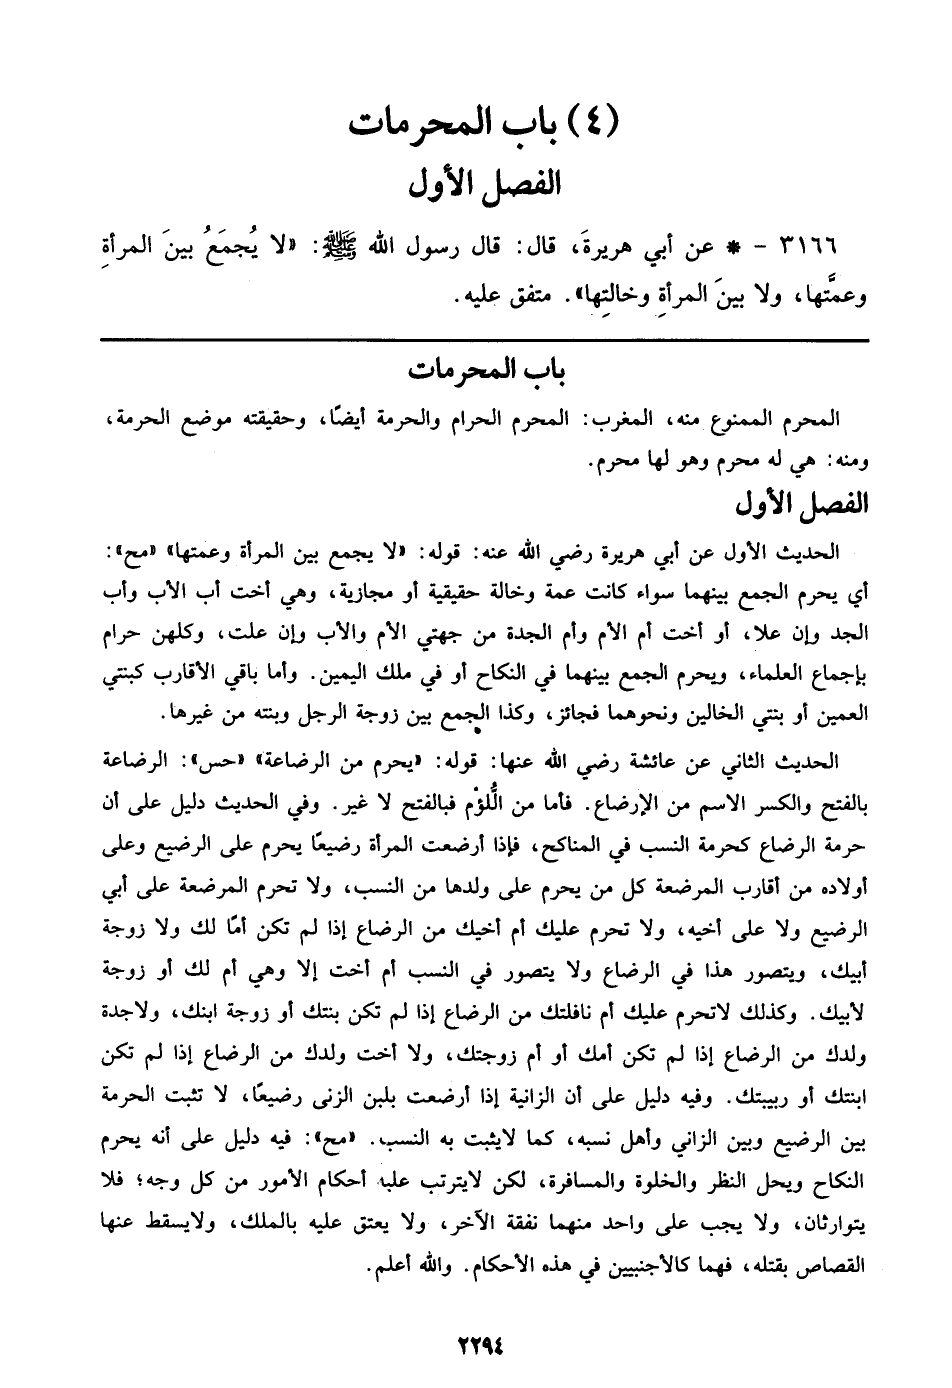 (٤) باب المحرمات
الفصل الأول
٣١٦٦ - * عن أبي هريرةَ، قال: قال رسول الله ﷺ: «لا يُجمَعُ بينَ المرأةِ
وعمَّتِها، ولا بينَ المرأةِ وخالتِها». متفق عليه.
باب المحرمات
المحرم الممنوع منه، المغرب: المحرم الحرام والحرمة أيضًا، وحقيقته موضع الحرمة،
ومنه: هي له محرم وهو لها محرم.
الفصل الأول
الحديث الأول عن أبي هريرة رضي الله عنه: قوله: «لا يجمع بين المرأة وعمتها» «مح»:
أي يحرم الجمع بينهما سواء كانت عمة وخالة حقيقية أو مجازية، وهي أخت أب الأب وأب
الجد وإن علا، أو أخت أم الأم وأم الجدة من جهتي الأم والأب وإن علت، وكلهن حرام
بإجماع العلماء، ويحرم الجمع بينهما في النكاح أو في ملك اليمين. وأما باقي الأقارب كبنتي
العمين أو بنتي الخالين ونحوهما فجائز، وكذا الجمع بين زوجة الرجل وبنته من غيرها.
الحديث الثاني عن عائشة رضي الله عنها: قوله: «يحرم من الرضاعة» «حس»: الرضاعة
بالفتح والكسر الاسم من الإرضاع. فأما من اللُّؤْم فبالفتح لا غير. وفي الحديث دليل على أن
حرمة الرضاع كحرمة النسب في المناكح، فإذا أرضعت المرأة رضيعًا يحرم على الرضيع وعلى
أولاده من أقارب المرضعة كل من يحرم على ولدها من النسب، ولا تحرم المرضعة على أبي
الرضيع ولا على أخيه، ولا تحرم عليك أم أخيك من الرضاع إذا لم تكن أمًا لك ولا زوجة
أبيك، ويتصور هذا في الرضاع ولا يتصور في النسب أم أخت إلا وهي أم لك أو زوجة
لأبيك. وكذلك لاتحرم عليك أم نافلتك من الرضاع إذا لم تكن بنتك أو زوجة ابنك، ولاجدة
ولدك من الرضاع إذا لم تكن أمك أو أم زوجتك، ولا أخت ولدك من الرضاع إذا لم تكن
ابنتك أو ربيبتك. وفيه دليل على أن الزانية إذا أرضعت بلبن الزنى رضيعًا، لا تثبت الحرمة
بين الرضيع وبين الزاني وأهل نسبه، كما لايثبت به النسب. «مح»: فيه دليل على أنه يحرم
النكاح ويحل النظر والخلوة والمسافرة، لكن لايترتب عليه أحكام الأمور من كل وجه؛ فلا
يتوارثان، ولا يجب على واحد منهما نفقة الآخر، ولا يعتق عليه بالملك، ولايسقط عنها
القصاص بقتله، فهما كالأجنبيين في هذه الأحكام. والله أعلم.
٢٢٩٤